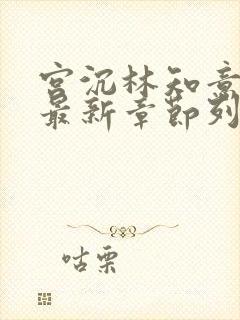 宫沉林知意
最新章节列
咕栗